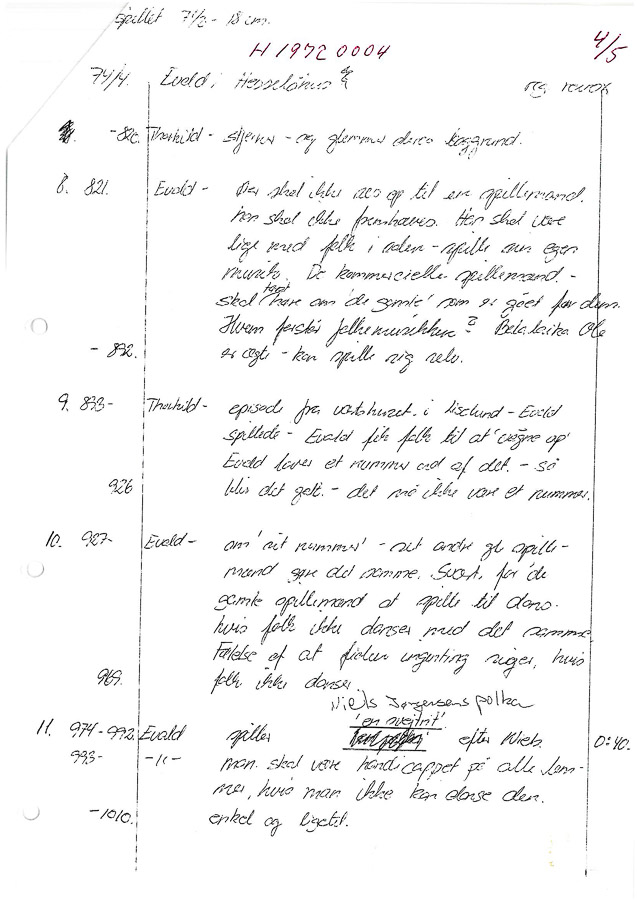 spillet 7½ - 18 cm.
H 1972 0004
4/5
74/4. Evald i Hesselhus
-820. Thorkild - stjerner - og glemmer deres baggrund.
8. 821. Evald - Der skal ikke ses op til en spillemand.
han skal ikke fremhæves. Han skal være
lige med folk i salen - spille sin egen
musik. De kommercielle spillemænd. -
skal tagt have om 'de gamle' som er gået før dem.
Hvem forstår folkemusikken? Balalaika Ole
- 832. er ægte - kan spille sig selv.
9. 833- Thorkild - episode fra værtshuset i Lislund - Evald
spillede - Evald fik folk til at 'vågne op'
Evald laver et nummer ud af det. - så
926 blir det galt. - det må ikke være et nummer.
10. 927- Evald - om 'sit nummer' - sit andre gl spille-
mænd gøre det samme. Svært, for de
gamle spillemænd at spille til dans.
hvis folk ikke danser med det samme
Følelse af at fiolen ingenting siger, hvis
969. folk ikke danser
Niels Jørgensens polka
'en svejtrit'
11. 974-992. Evald spiller efter Nieb. 0:40.
993- -"- man skal være handicappet på alle lem-
mer, hvis man ikke kan danse den.
-1010. enkel og ligetil.